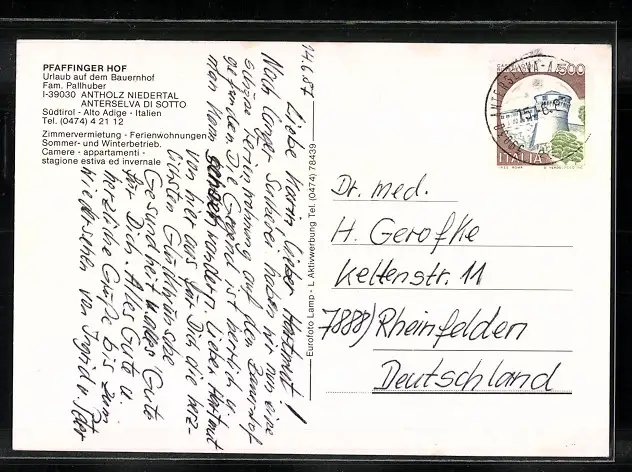 PFAFFINGER HOF
Urlaub auf dem Bauernhof
Fam. Pallhuber
I-39030 ANTHOLZ NIEDERTAL
ANTERSELVA DI SOTTO
Südtirol - Alto Adige - Italien
Tel. (0474) 4 21 12
Zimmervermietung - Ferienwohnungen
Sommer- und Winterbetrieb.
Camere - appartamenti -
stagione estiva ed invernale
14.6.87
Liebe Karin, lieber Hartmut!
Nach langer Sucherei haben wir nun eine
Ferienwohnung auf dem Bauernhof
gefunden. Die Gegend ist herrlich u.
man kann schön wandern. Lieber Hartmut
von hier aus für Dich die herz-
lichsten Glückwünsche
Gesundheit und alles Gute
für Dich. Alles Gute u.
herzliche Grüße bis zum
Wiedersehen von Ingrid u.
Eurofoto Lamp - L Aktivwerbung Tel. (0474) 78439
500
ITALIA
Dr. med.
H. Gerofke
Keltenstr. 11
7888) Rheinfelden
Deutschland